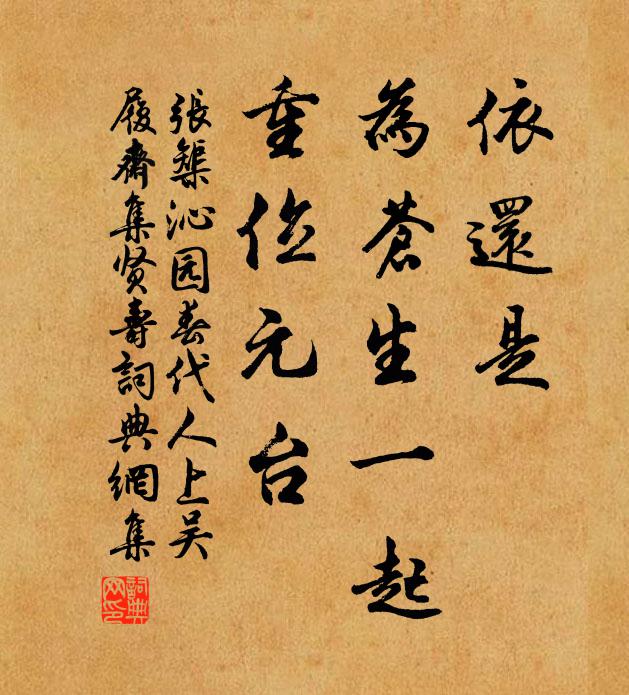 依還是
為蒼生一起
重位元台
張榘沁园春代人上吴
履齋集贤壽詞典網集
詞典
网印